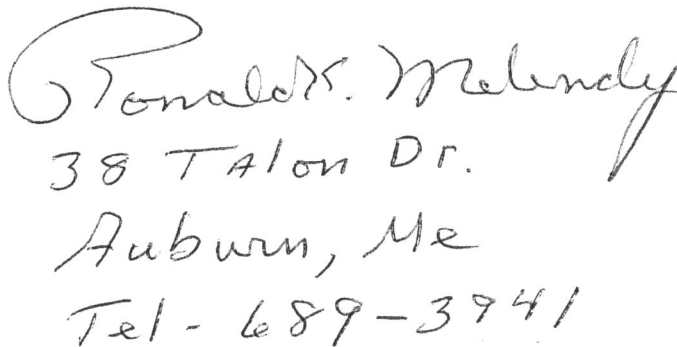 Ronald K. Melendy
38 Talon Dr.
Auburn, Me
Tel - 689-3941